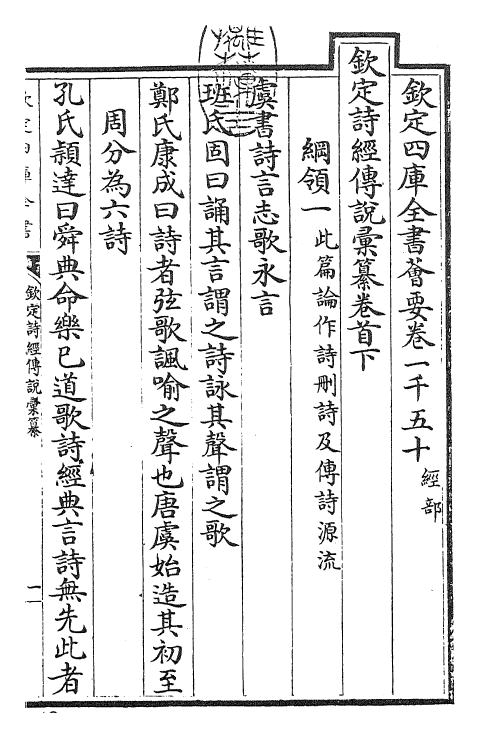 欽定四庫全書薈要卷一千五十 經部
欽定詩經傳說彙纂卷首下
綱領一 此篇論作詩刪詩及傳詩源流
虞書詩言志歌永言
班氏固曰誦其言謂之詩詠其聲謂之歌
鄭氏康成曰詩者弦歌諷喻之聲也唐虞始造其初至
周分為六詩
孔氏穎達曰舜典命樂已道歌詩經典言詩無先此者
欽定四庫全書
欽定詩經傳說彙纂
一